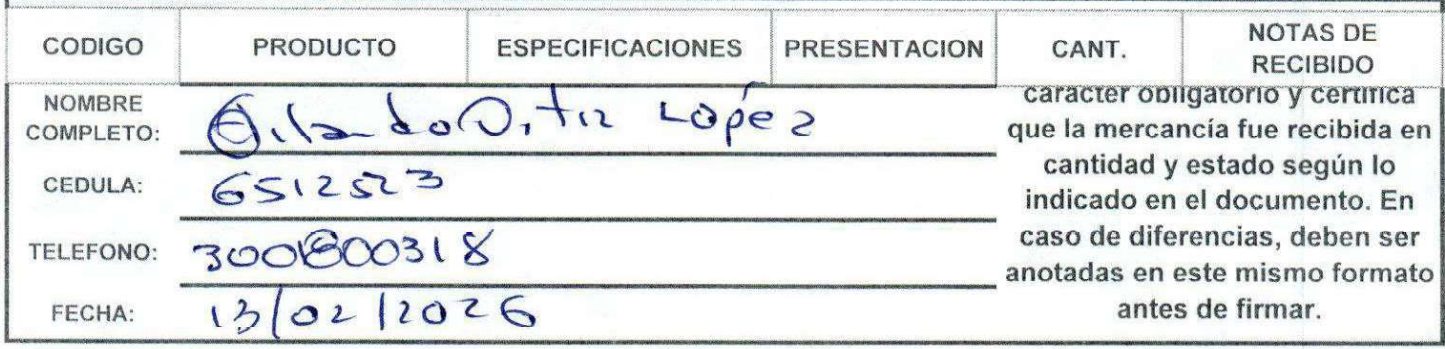 CODIGO PRODUCTO ESPECIFICACIONES PRESENTACION CANT. NOTAS DE RECIBIDO
NOMBRE COMPLETO: Ortiz López
CEDULA: 6512523
TELEFONO:
FECHA: 13/02/2026
caracter obligatorio y certifica
que la mercancía fue recibida en
cantidad y estado según lo
indicado en el documento. En
caso de diferencias, deben ser
anotadas en este mismo formato
antes de firmar.